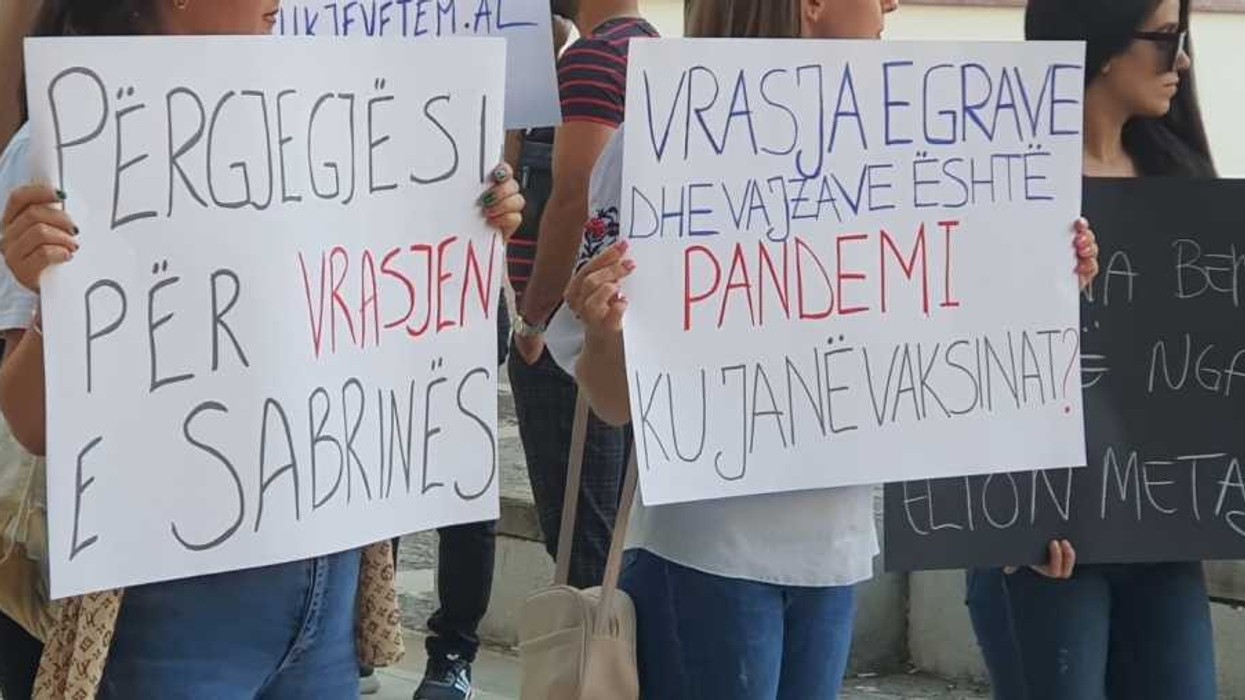 UKJEVETEM.AL
PËRGJEGJËSI
PËR VRASJEN
E SABRINËS
VRASJA E GRAVE
DHE VAJZAVE ËSHTË
PANDEMI
KU JANË VAKSINAT?
NGA
ELTON META